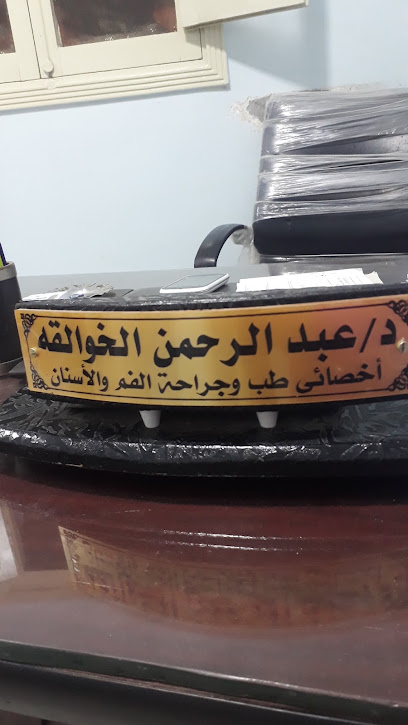 د/عبد الرحمن الخوالقه
أخصائى طب وجراحة الفم والأسنان